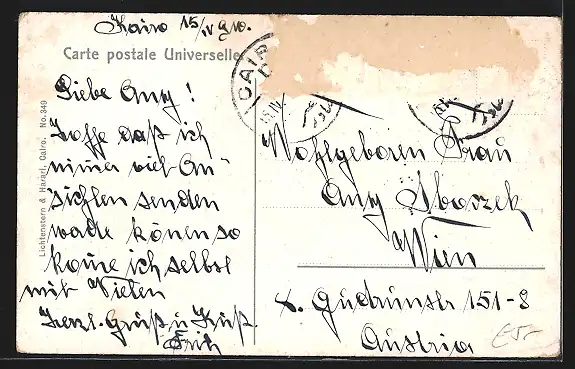 Kairo 15/IV 910.
Carte postale Universelle
CAIR
15.IV
Liebe Any!
Hoffe daß ich
nimer viel An-
sichten senden
werde könen so
kome ich selbst
mit Vielen
Herzl. Gruß u Kuß.
Fritz
Lichtenstern & Harari, Cairo. No. 349
Wohlgeboren Frau
Any
Wien
X. Gudrunstr 151-8
Austria